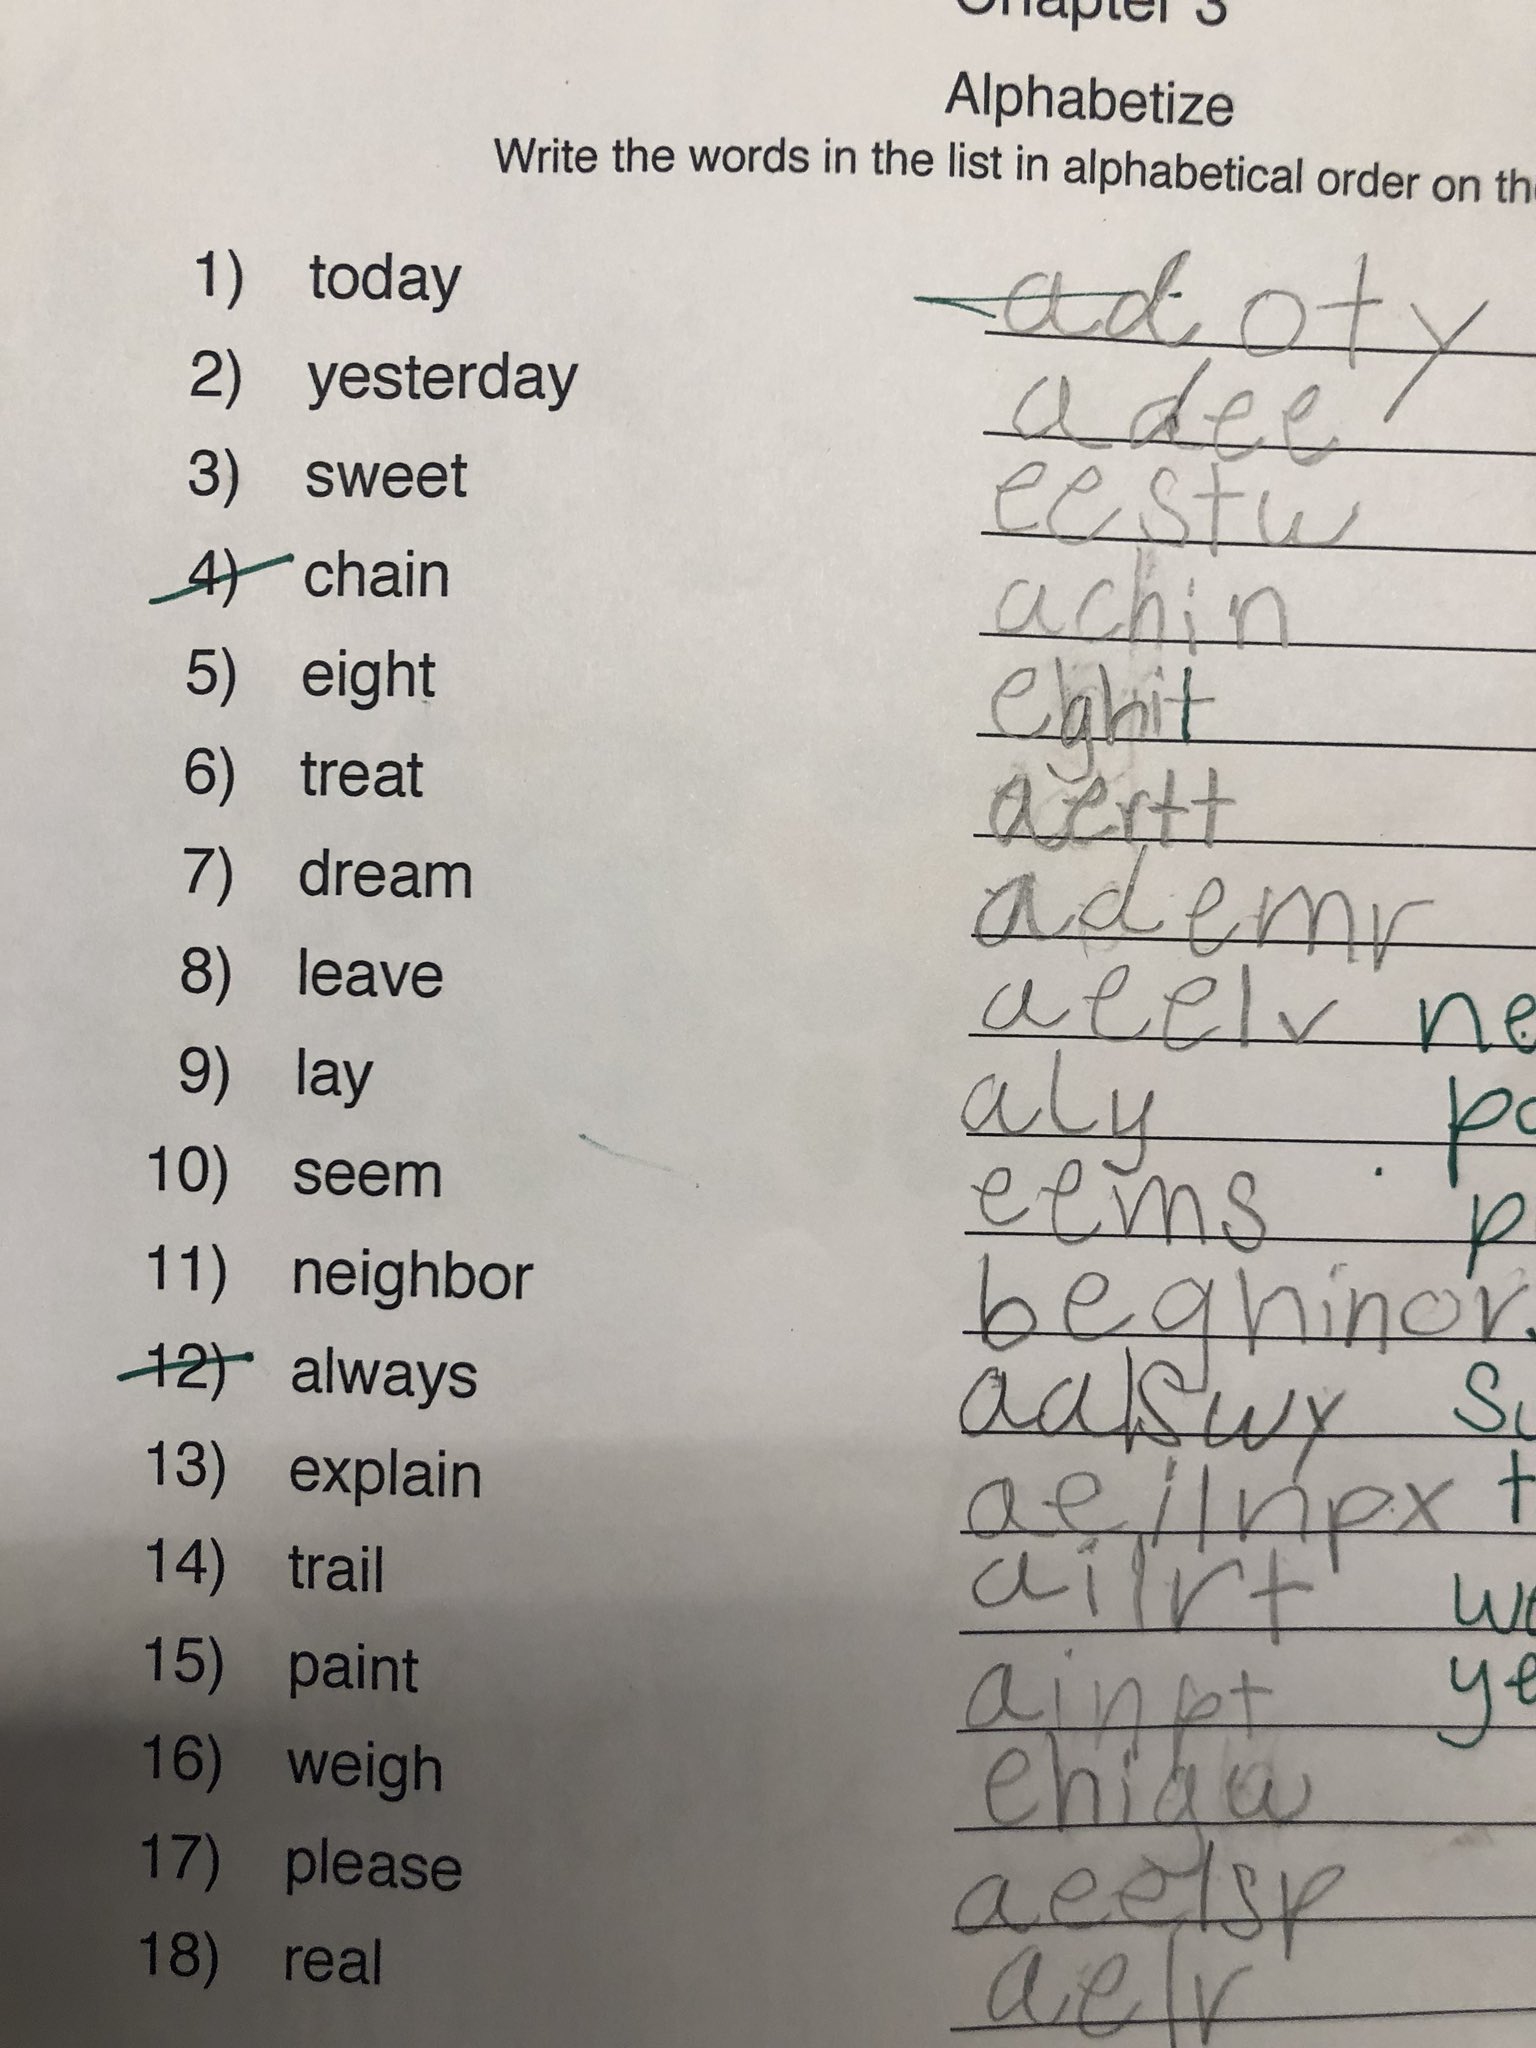 Chapter 3
Alphabetize
Write the words in the list in alphabetical order on the
1) today adoty
2) yesterday adee
3) sweet eestw
4) chain achin
5) eight eghit
6) treat aertt
7) dream ademr
8) leave aeelv ne
9) lay aly
10) seem eems
11) neighbor beghinor
12) always aalswy
13) explain aeilnpx t
14) trail ailrt
15) paint ainpt ye
16) weigh
17) please aeelsp
18) real aelr